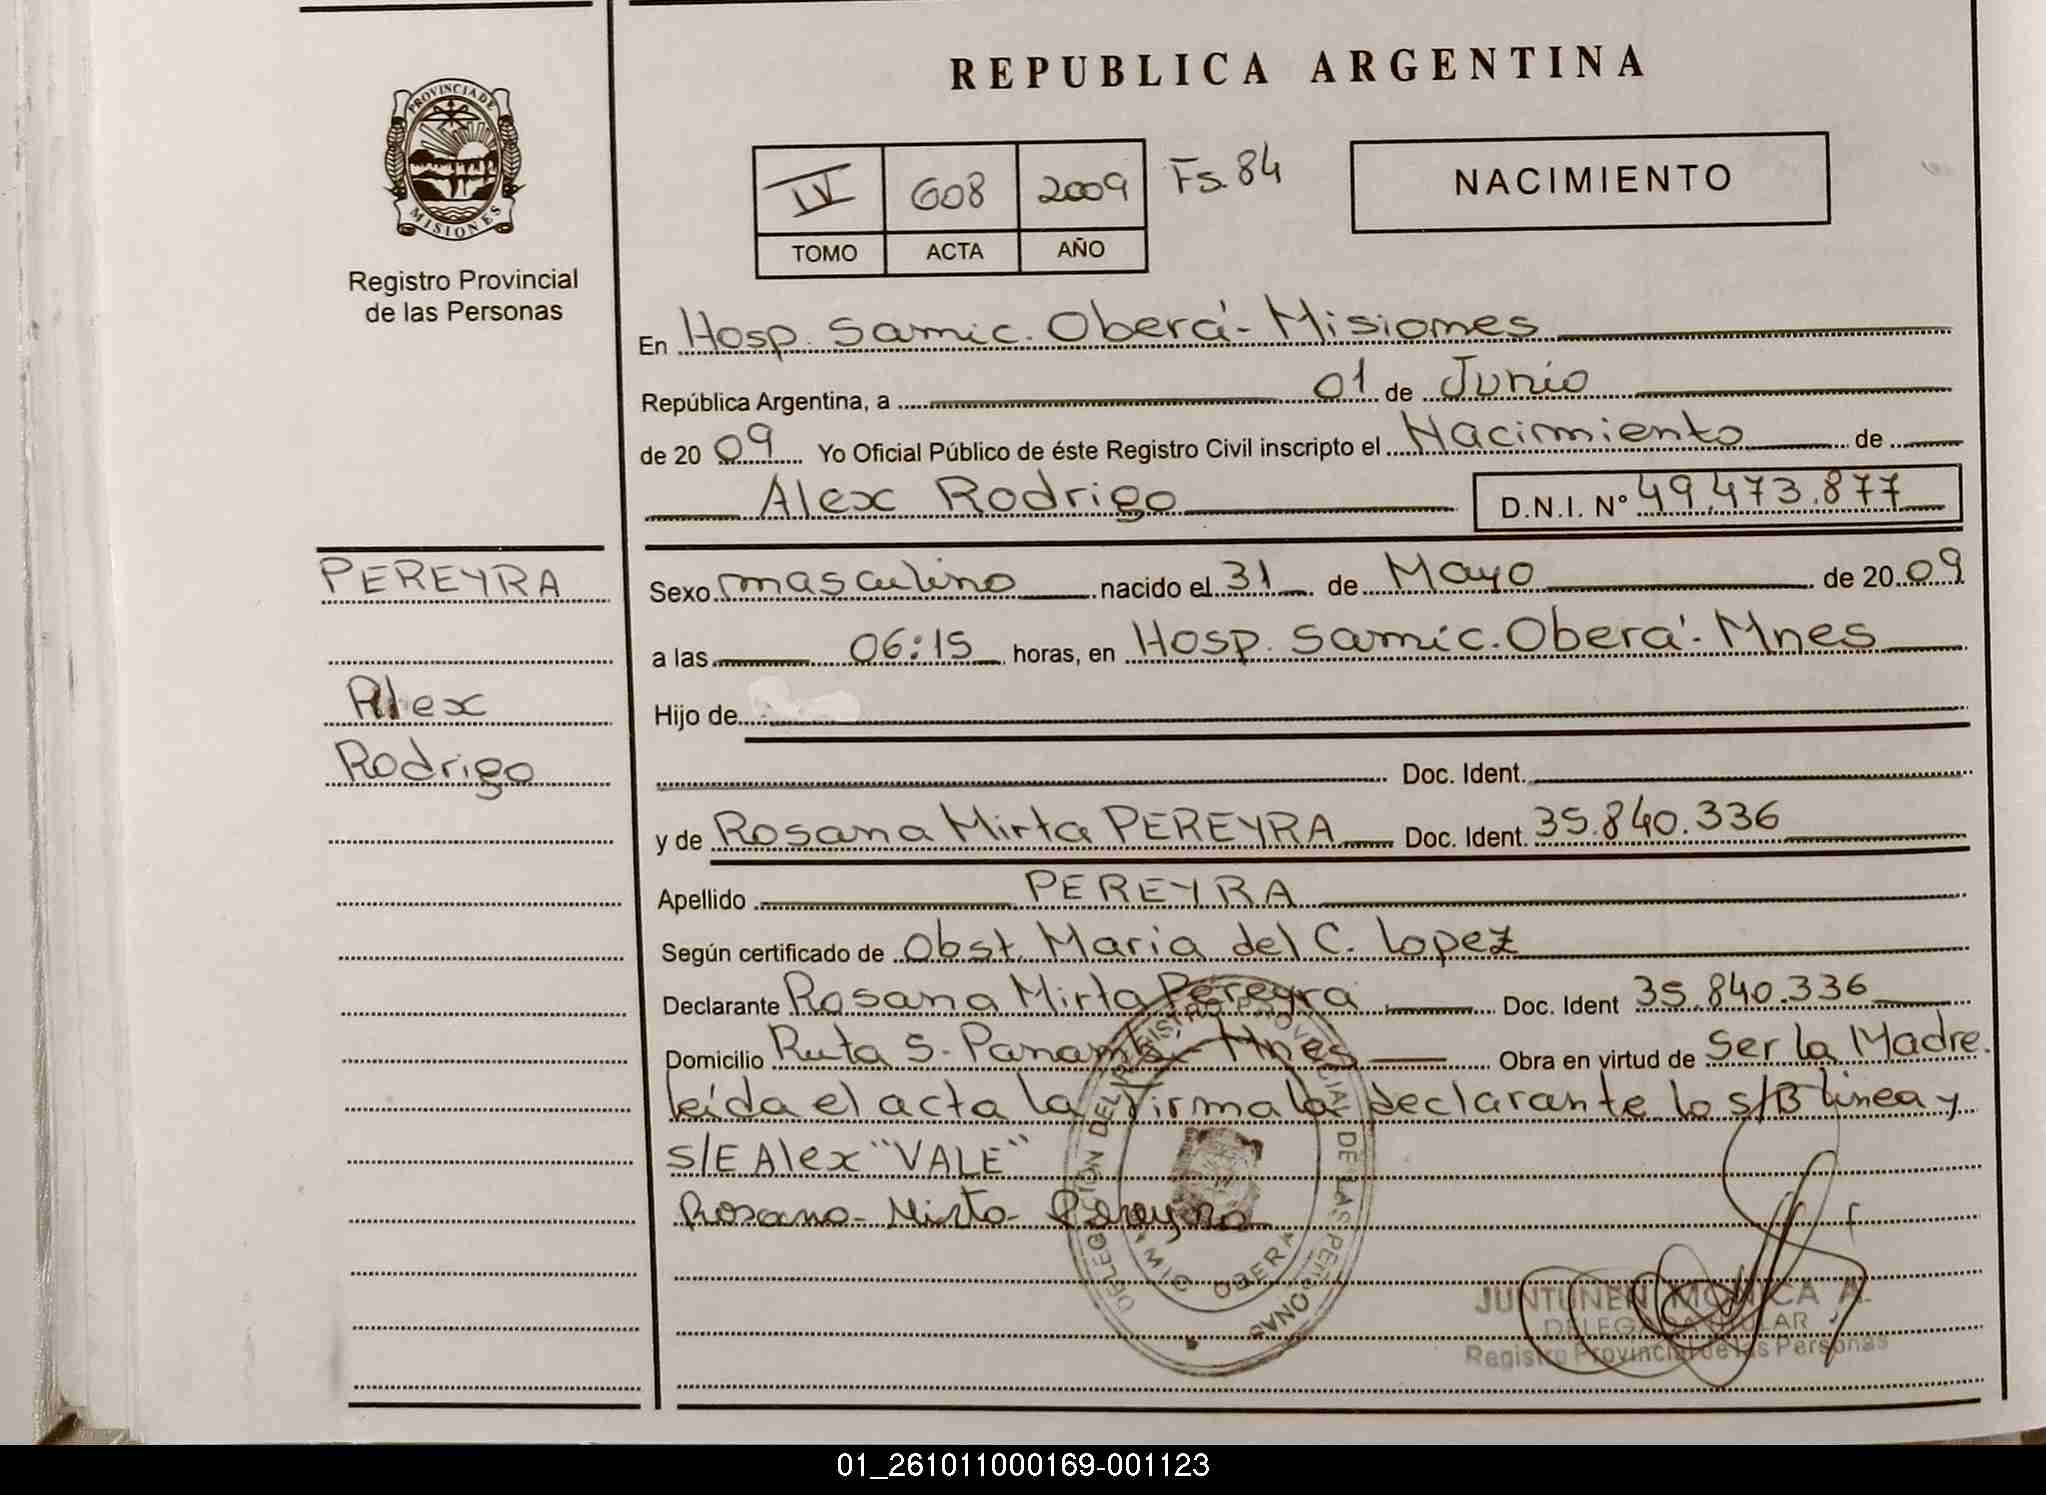 REPUBLICA ARGENTINA
PROVINCIA DE
MISIONES
Registro Provincial
de las Personas
IV 608 2009 Fs. 84
TOMO ACTA AÑO
NACIMIENTO
En Hosp. Samic. Oberá - Misiones
República Argentina, a 01 de Junio
de 2009 Yo Oficial Público de éste Registro Civil inscripto el Nacimiento de
Alex Rodrigo D.N.I. Nº 49.473.877
PEREYRA
Alex
Rodrigo
Sexo masculino nacido el 31 de Mayo de 2009
a las 06:15 horas, en Hosp. Samic. Oberá - Mnes
Hijo de
Doc. Ident.
y de Rosana Mirta PEREYRA Doc. Ident. 35.840.336
Apellido PEREYRA
Según certificado de Obst. Maria del C. Lopez
Declarante Rosana Mirta Pereyra Doc. Ident 35.840.336
Domicilio Ruta 5 - Panambi - Mnes Obra en virtud de Ser la Madre.
leída el acta la firma la declarante lo s/B linea y
S/E Alex "VALE"
Rosana Mirta Pereyra
DELEGACIÓN DEL REGISTRO PROVINCIAL DE LAS PERSONAS
OBERA
JUNTUNEN MONICA A.
DELEGADA TITULAR
Registro Provincial de las Personas
01_261011000169-001123